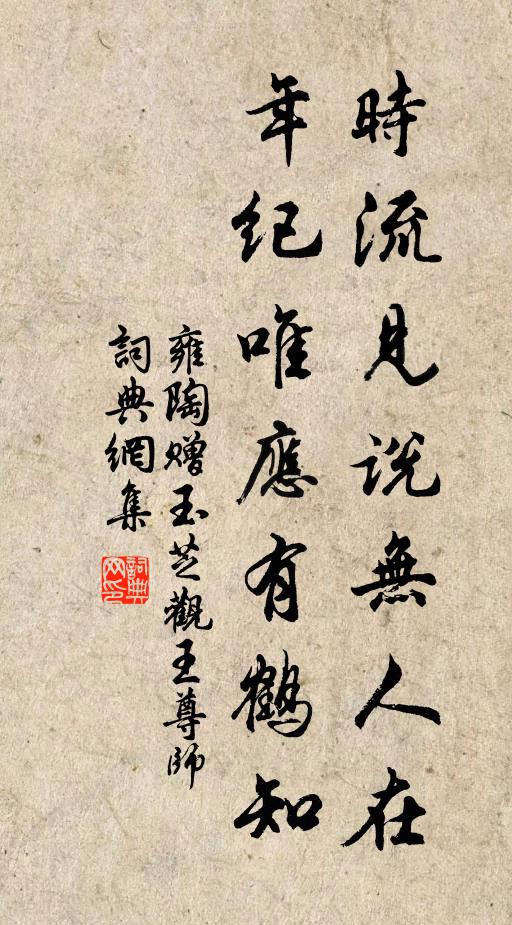 時流見説無人在
年紀唯應有鶴知
雍陶贈玉芝觀王尊師
詞典網集
詞典網印